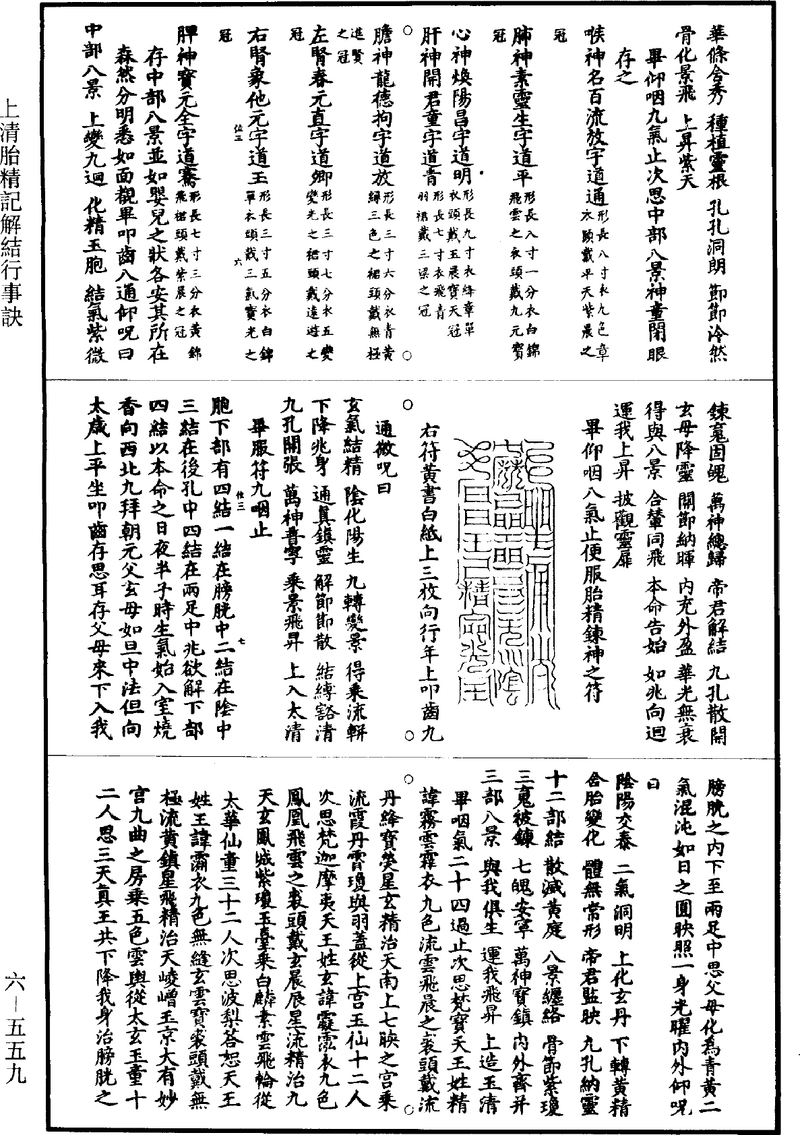 上清胎精記解結行事訣
六－五五九
華條含秀　種植靈根　孔孔洞朗　節節泠然
骨化景飛　上昇紫天
畢仰咽九氣止次思中部八景神童閉眼
存之
喉神名百流放字道通形長八寸衣九色章衣頭戴平天紫晨之
冠
肺神素靈生字道平形長八寸一分衣白錦飛雲之衣頭戴九元寶
冠
心神煥陽昌字道明形長九寸衣絳章單衣頭戴五晨寶天冠
肝神開君童字道青形長七寸衣飛青羽裙戴三梁之冠
膽神龍德拘字道放形長三寸六分衣青黃綠三色之裙頭戴無極
進賢之冠
左腎春元直字道卿形長三寸七分衣五變變光之裙頭戴遠遊之
冠
右腎象他元字道王形長三寸五分衣白錦單衣頭戴三氣寶光之
冠
脾神寶元全字道騫形長七寸三分衣黃錦飛裙頭戴紫晨之冠
存中部八景並如嬰兒之狀各安其所在
森然分明悉如面觀畢叩齒八通仰呪曰
中部八景　上變九迴　化精玉胞　結氣紫微
鍊䰟固魄　萬神總歸　帝君解結　九孔散開
玄母降靈　開節納暉　內充外盈　華光無衰
得與八景　合輦同飛　本命告始　如兆向迴
運我上昇　披觀靈扉
畢仰咽八氣止便服胎精鍊神之符
右符黃書白紙上三枚向行年上叩齒九
通微呪曰
玄氣結精　陰化陽生　九轉變景　得乘流軿
下降兆身　通真鎮靈　解節節散　結縛豁清
九孔開張　萬神普寧　乘景飛昇　上入太清
畢服符九咽止
胞下部有四結一結在膀胱中二結在陰中
三結在後孔中四結在兩足中兆欲解下部
四結以本命之日夜半子時生氣始入室燒
香向西北九拜朝元父玄母如旦中法但向
太歲上平坐叩齒存思耳存父母來下入我
膀胱之內下至兩足中思父母化為青黃二
氣混沌如日之圓映照一身光曜內外仰呪
曰
陰陽交泰　二氣洞明　上化玄丹　下轉黃精
含胎變化　體無常形　帝君監映　九孔納靈
十二部結　散滅黃庭　八景纏絡　骨節紫瓊
三䰟被鍊　七魄安寧　萬神寶鎮　內外齊并
三部八景　與我俱生　運我飛昇　上造玉清
畢咽氣二十四過止次思梵寶天王姓精
諱霧雲霏衣九色流雲飛晨之裘頭戴流
丹絳寶熒星玄精治天南上七映之宮乘
流霞丹霄瓊與羽蓋從上宮玉仙十二人
次思梵迦摩夷天王姓玄諱靇霐衣九色
鳳凰飛雲之裘頭戴玄晨辰星流精治九
天玄鳳城紫瓊玉臺乘白麟素雲飛輪從
太華仙童三十二人次思波梨荅恕天王
姓王諱霱衣九色無縫玄雲寶裘頭戴無
極流黃鎮星飛精治天崚嶒玉京大有妙
宮九曲之房乘五色雲輿從太玄玉童十
二人思三天真王共下降我身治膀胱之